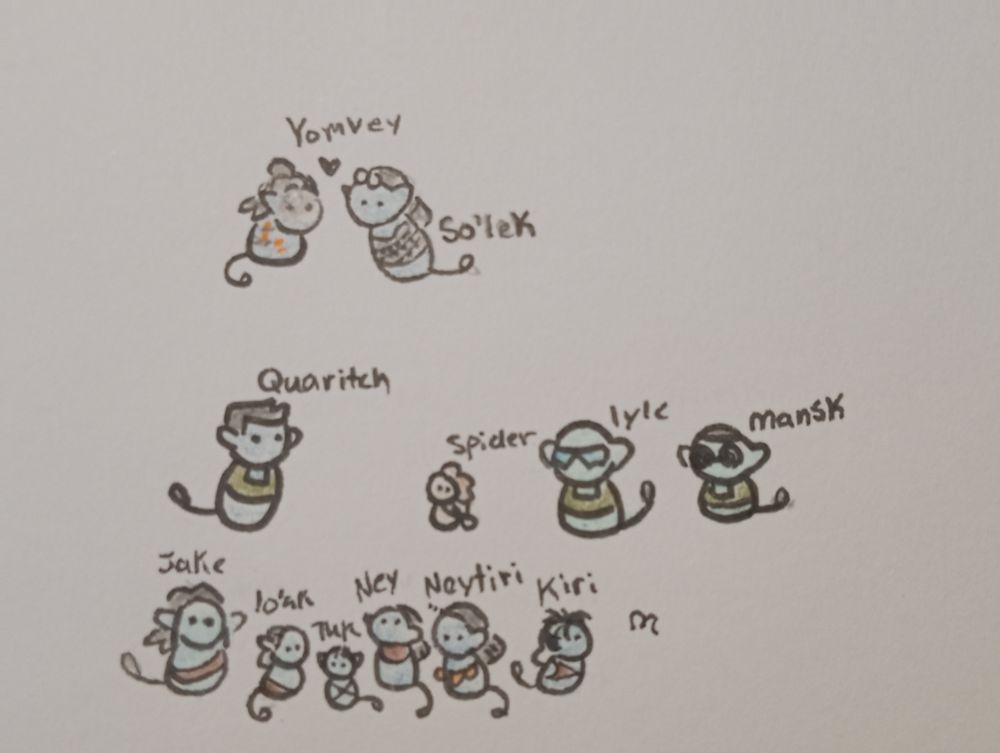 Yomvey
So'lek
Quaritch
Spider
lyle
mansk
Jake
lo'ak
Tuk
Ney
Neytiri
Kiri
m